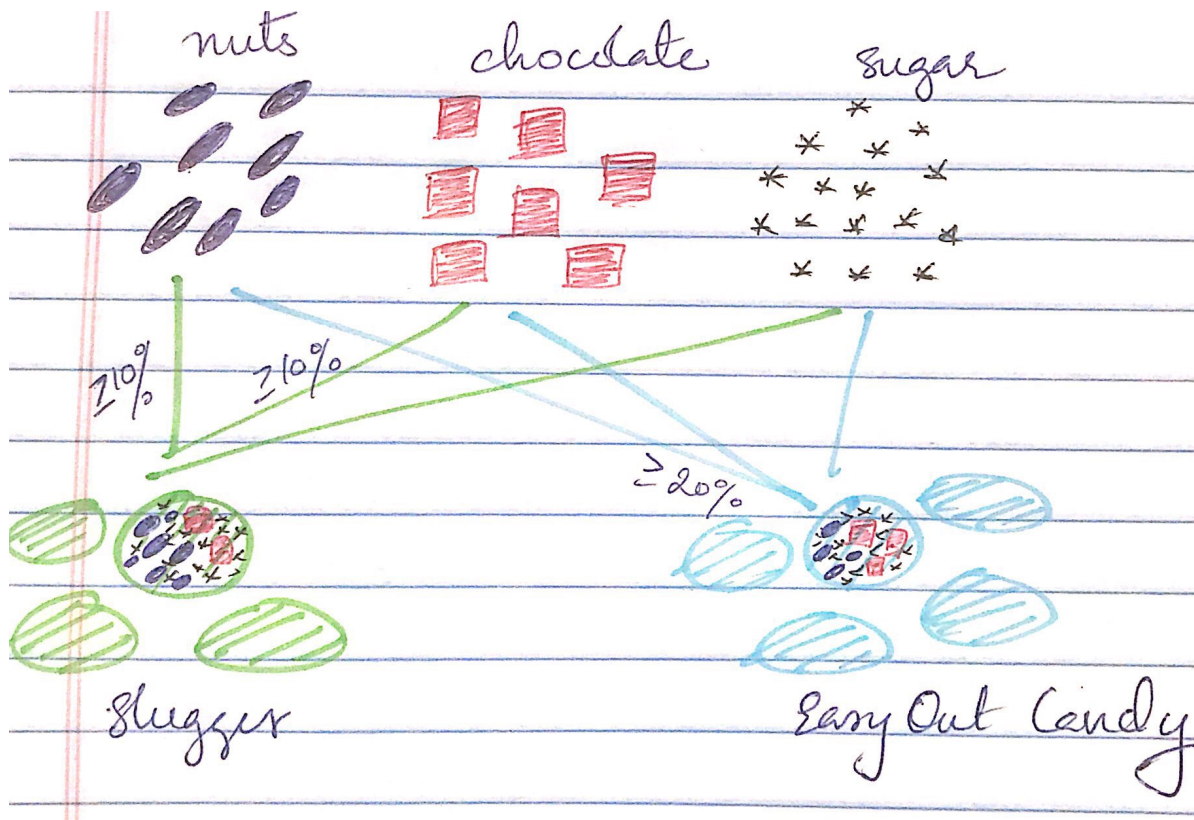 nuts chocolate sugar
≥10% ≥10%
≥20%
Slugger Easy Out Candy